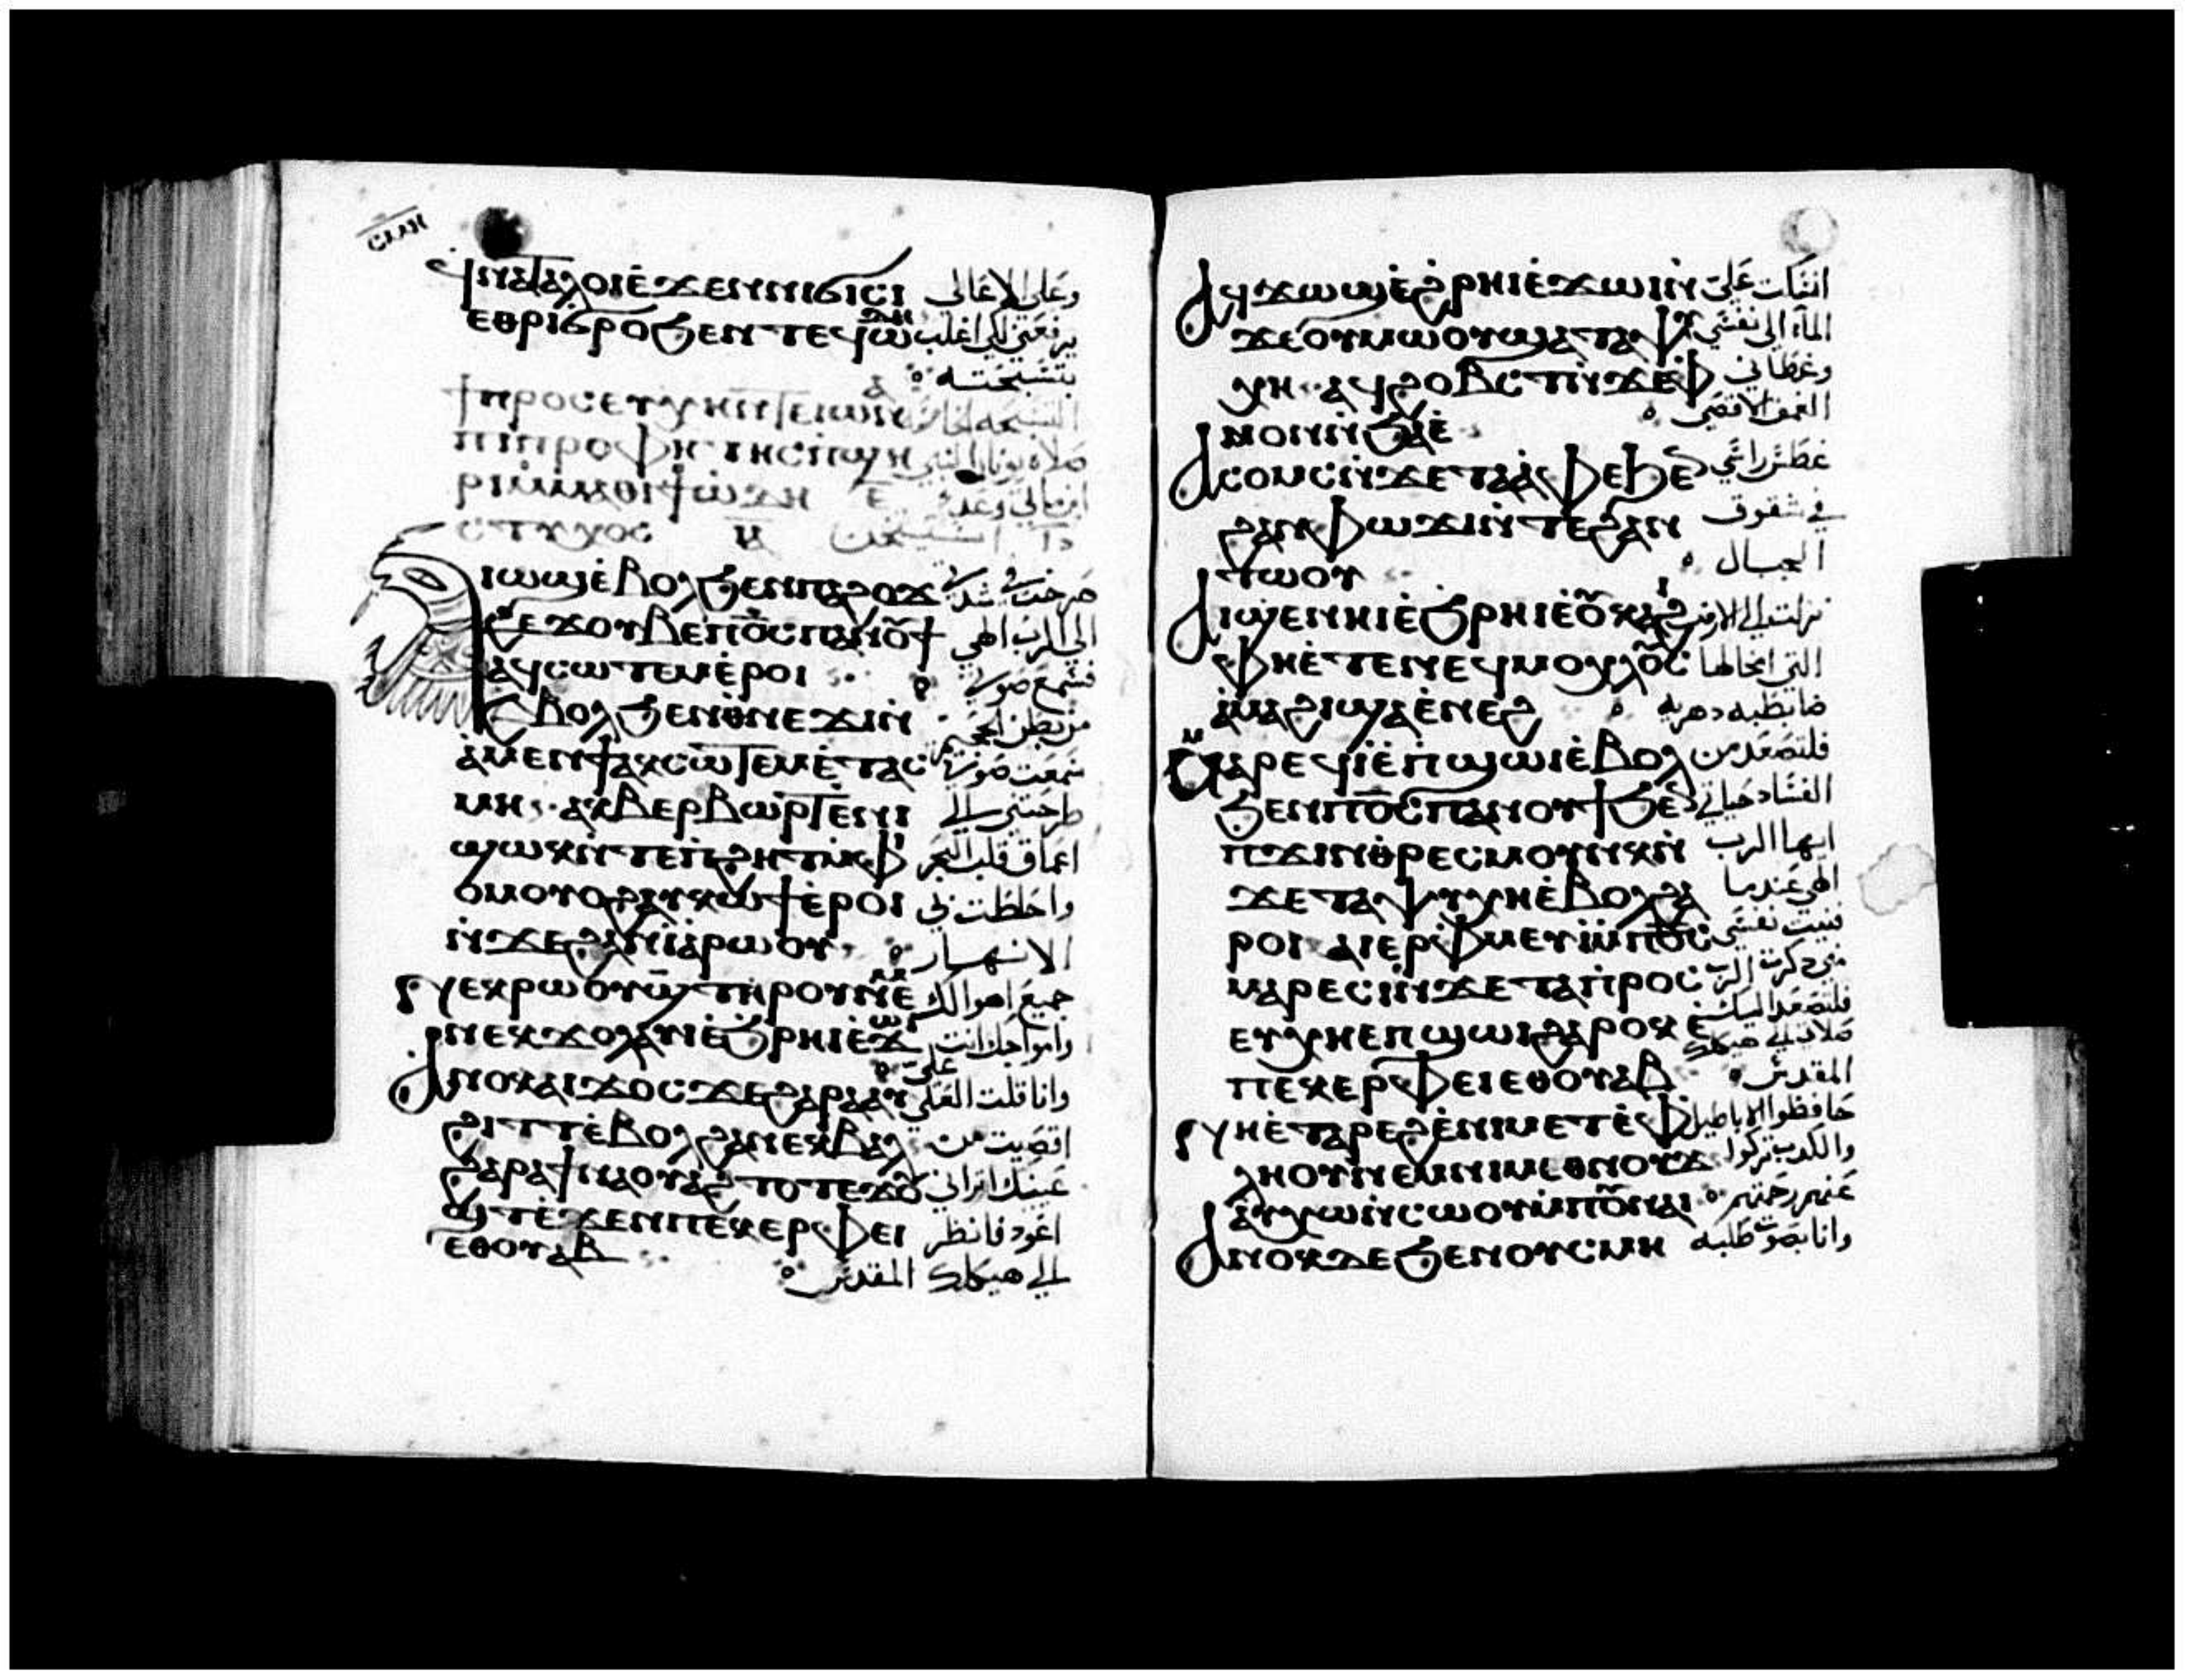 ⲥⲙⲏ
ϥⲛⲁⲧⲁⲗⲟⲓ ⲉϫⲉⲛ ⲛⲓϭⲓⲥⲓ وعلى الاعالي
ⲉⲑⲣⲓϭⲣⲟ ϧⲉⲛ ⲧⲉϥⲱⲇⲏ يرفعني لكي اغلب
بتسبحته
ϯⲡⲣⲟⲥⲉⲩⲭⲏ ⲛⲧⲉ ⲓⲱⲛⲁ
ⲡⲓⲡⲣⲟⲫⲏⲧⲏⲥ ⲡϣⲏ صلاة يونان النبي
ⲣⲓ ⲙⲙⲁⲑⲓ ϯⲱⲇⲏ ⲉ̅
ⲥⲧⲩⲭⲟⲥ
ⲓⲱϣ ⲉⲃⲟⲗ ϧⲉⲛ ⲡⲁϩⲟϫ صرخت في شدتي
ϩⲉϫ ϩⲟⲩⲃⲉ ⲡϭⲥ ⲡⲁⲛⲟⲩϯ الى الرب الهي
ⲁϥⲥⲱⲧⲉⲙ ⲉⲣⲟⲓ فسمع صوتي
ⲉⲃⲟⲗ ϧⲉⲛ ⲑⲛⲉϫⲓ ⲛ من بطن الجحيم
ⲁⲙⲉⲛϯ ⲁⲕⲥⲱⲧⲉⲙ ⲉⲧⲁⲥ سمعت صوتي
ⲙⲏ ⲁⲕⲃⲉⲣⲃⲱⲣⲧ ⲉⲛⲓ طرحتني الى
ϣⲱⲕ ⲛⲧⲉ ⲡϩⲏⲧ ⲙⲫⲓ اعماق قلب البحر
ⲟⲙ ⲟⲩⲟϩ ⲁⲩⲕⲱϯ ⲉⲣⲟⲓ واحاطت بي
ⲛϫⲉ ϩⲁⲛⲓⲁⲣⲱⲟⲩ الانهار
ⲛⲉⲕⲣⲱⲟⲩϣ ⲧⲏⲣⲟⲩ ⲛⲉⲙ جميع اهوالك
ⲛⲉⲕϫⲟⲗ ⲁⲩⲓ ⲉϩⲣⲏⲓ ⲉϫⲱⲓ وامواجك اتت
على
ⲁⲛⲟⲕ ⲁⲓϫⲟⲥ ϫⲉ ϩⲁⲣⲁ ⲁⲩ وانا قلت العلي
ϩⲓⲧⲧ ⲉⲃⲟⲗ ϩⲁ ⲛⲉⲕⲃⲁⲗ اقصيت من
ϩⲁⲣⲁ ϯⲛⲁⲟⲩⲁϩⲧⲟⲧ ⲉϫⲟ عينيك اتراني
ⲩϣⲧ ⲉϫⲉⲛ ⲡⲉⲕⲉⲣⲫⲉⲓ اعود فانظر
ⲉⲑⲟⲩⲁⲃ الى هيكلك المقدس
ⲁϥϫⲱϣ ⲉϩⲣⲏⲓ ⲉϫⲱⲓ ⲛ انسكب على
ϫⲉ ⲟⲩⲙⲱⲟⲩ ϣⲁ ⲧⲁⲯⲩ الماء الى نفسي
ⲭⲏ ⲁϥϩⲟⲃⲥⲧ ⲛϫⲉ ⲫ وغطاني
ⲛⲟⲩⲛ ⲛϧⲁⲉ العمق الاقصى
ⲁⲥⲟⲙⲥ ⲛϫⲉ ⲧⲁⲁⲫⲉ ϧⲉⲛ غطس راسي
ϩⲁⲛⲫⲱϫⲓ ⲛⲧⲉ ϩⲁⲛ في شقوق
ⲧⲱⲟⲩ الجبال
ⲁⲓϣⲉⲛⲏⲓ ⲉϧⲣⲏⲓ ⲉⲟⲩⲕⲁϩⲓ نزلت الى الارض
ⲫⲏⲉⲧⲉ ⲛⲉϥⲙⲟⲭⲗⲟⲥ التي اقفالها
ⲁⲙⲁϩⲓ ϣⲁ ⲉⲛⲉϩ ضابطة دهرية
ⲙⲁⲣⲉϥⲓ ⲉⲡϣⲱⲓ ⲉⲃⲟⲗ فلتصعد من
ϧⲉⲛ ⲡϭⲥ ⲡⲁⲛⲟⲩϯ ϧⲉⲛ الفساد حياتي
ⲡϫⲓⲛⲑⲣⲉⲥⲙⲟⲩⲛⲕ ⲛ ايها الرب
ϫⲉ ⲧⲁⲯⲩⲭⲏ ⲉⲃⲟⲗ ϩⲁ الهي عندما
ⲣⲟⲓ ⲁⲓⲉⲣⲫⲙⲉⲩⲓ ⲙⲡϭⲥ فنيت نفسي
ⲙⲁⲣⲉⲥⲓ ⲛϫⲉ ⲧⲁⲡⲣⲟⲥ مني ذكرت الرب
ⲉⲩⲭⲏ ⲉⲡϣⲱⲓ ϩⲁⲣⲟⲕ ⲉ فلتصعد اليك
صلاتي الى هيكلك
ⲡⲉⲕⲉⲣⲫⲉⲓ ⲉⲑⲟⲩⲁⲃ المقدس
ⲛⲏⲉⲧⲁⲣⲉϩ ⲉⲛⲓⲙⲉⲧⲉⲫ حافظوا الاباطيل
ⲗⲏⲟⲩ ⲛⲉⲙ ⲛⲓⲙⲉⲑⲛⲟⲩϫ والكذب تركوا
ⲁⲩⲭⲱ ⲛⲥⲱⲟⲩ ⲙⲡⲟⲩⲛⲁⲓ عنهم رحمتهم
ⲁⲛⲟⲕ ⲇⲉ ϧⲉⲛ ⲟⲩⲥⲙⲏ وانا بصوت طلبه